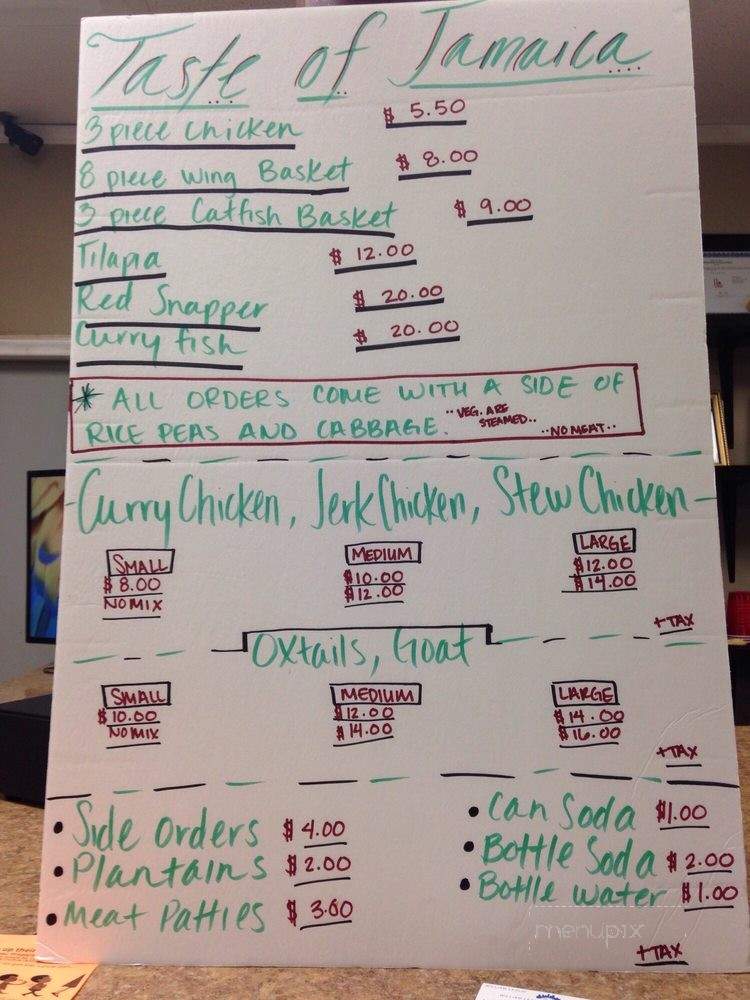 Taste of Jamaica
3 piece chicken $ 5.50
8 piece wing Basket $ 8.00
3 piece Catfish Basket $ 9.00
Tilapia $ 12.00
Red Snapper $ 20.00
Curry fish $ 20.00
* ALL ORDERS COME WITH A SIDE OF
RICE PEAS AND CABBAGE. ..VEG. ARE STEAMED.. ..NO MEAT..
-Curry Chicken, Jerk Chicken, Stew Chicken-
SMALL MEDIUM LARGE
$ 8.00 $10.00 $12.00
NO MIX $12.00 $14.00
+TAX
Oxtails, Goat
SMALL MEDIUM LARGE
$10.00 $12.00 $14.00
NO MIX $14.00 $16.00
+TAX
• Side Orders $ 4.00
• Plantains $ 2.00
• Meat Patties $ 3.00
• Can Soda $1.00
• Bottle Soda $ 2.00
• Bottle water $1.00
+TAX
menupix